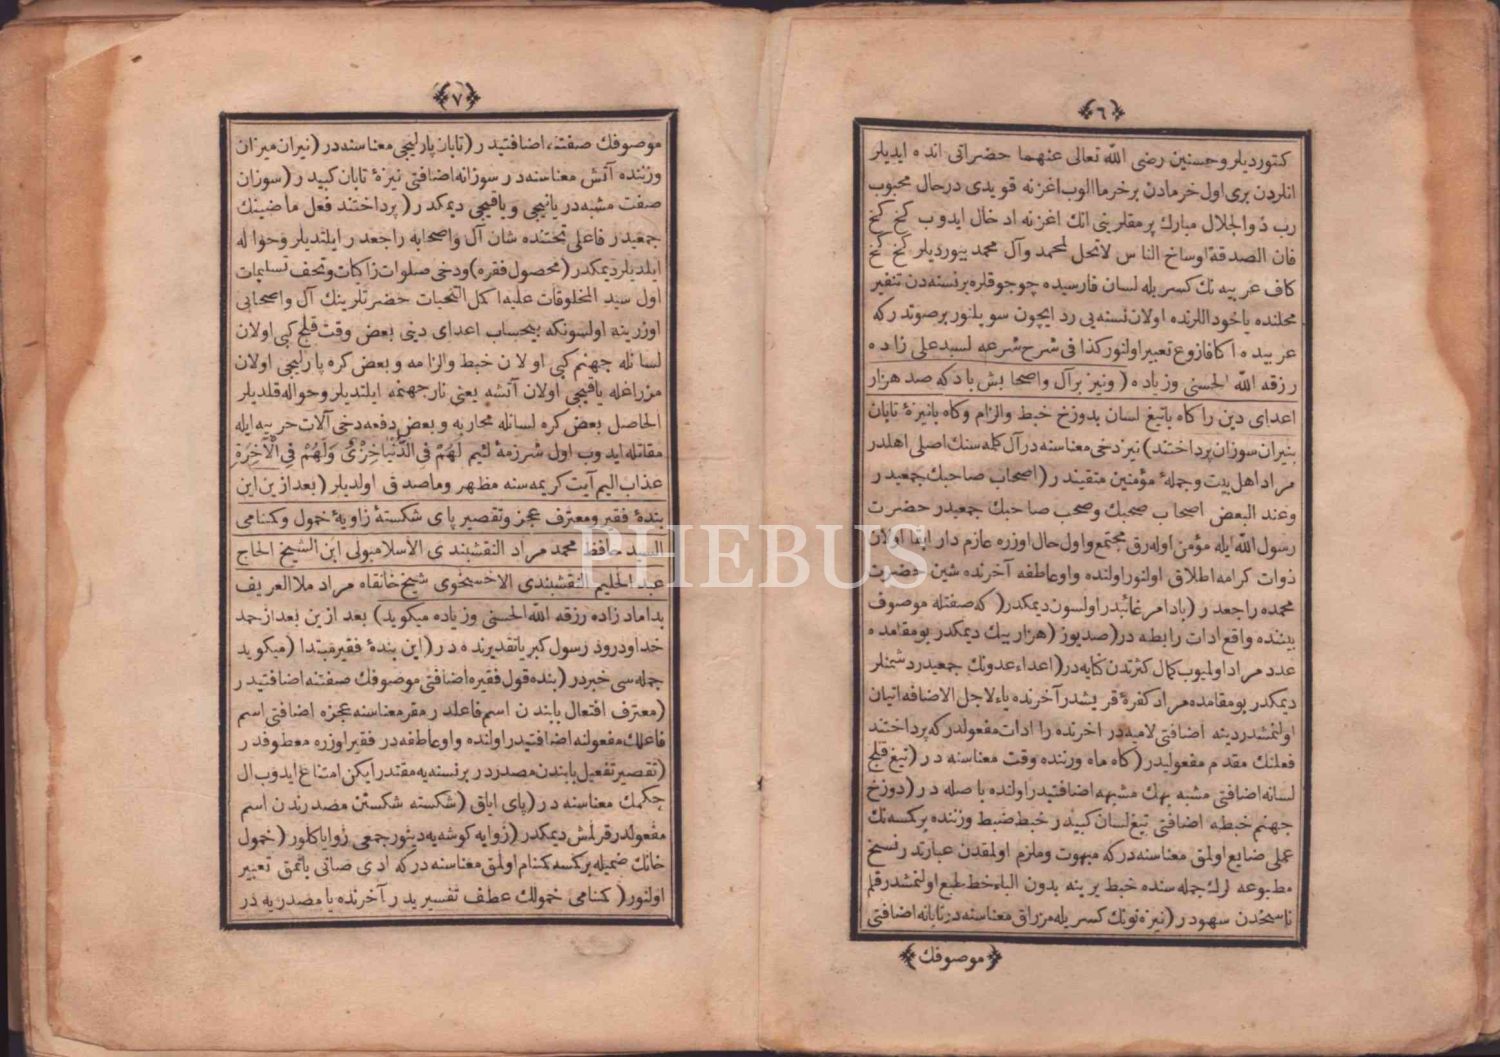 ﴿٦﴾
كتورديلر وحسنين رضى الله تعالى عنهما حضراتى انده ايديلر
انلردن برى اول خرمادن برخرما الوب اغزنه قويدى درحال محبوب
رب ذوالجلال مبارك پرمقلرينى انك اغزنه ادخال ايدوب كخ كخ
فان الصدقة اوساخ الناس لاتحل لمحمد وآل محمد بيورديلر كخ كخ
كاف عربيه نك كسريله لسان فارسيده چوجوقلره برنسنه دن تنفير
محلنده ياخود اللرنده اولان نسنه يى رد ايچون سويلنور برصوتدركه
عربيده اكافازوع تعبير اولنور كذا فى شرح شرعه لسيد على زاده
رزقه الله الحسنى وزياده (ونيز برآل واصحابش بادكه صد هزار
اعداى دين را كاه باتيغ لسان بدوزخ خبط والزام وكاه بانيزۀ تابان
بنيران سوزان پرداختند) نيز دخى معناسنه در آل كلمه سنك اصلى اهلدر
مراد اهل بيت وجملۀ مؤمنين متقيندر (اصحاب صاحبك جمعيدر
وعند البعض اصحاب صحبك وصحب صاحبك جمعيدر حضرت
رسول الله ايله مؤمن اوله رق مجتمع واول حال اوزره عازم دار ابقا اولان
ذوات كرامه اطلاق اولنور اولنده واو عاطفه آخرنده شين حضرت
محمده راجعدر (باد امر غائبدر اولسون ديمكدر (كه صفتله موصوف
بيننده واقع ادات رابطه در (صد يوز (هزار بيك ديمكدر بومقامده
عدد مراد اولميوب كمال كثرتدن كنايه در (اعداء عدونك جمعيدر دشمنلر
ديمكدر بومقامده مراد كفرۀ قريشدر آخرنده ياء لاجل الاضافه اتيان
اولنمشدر دينه اضافتى لاميه در اخرنده را ادات مفعولدركه پرداختند
فعلنك مقدم مفعوليدر (كاه ماه وزننده وقت معناسنه در (تيغ قلج
لسانه اضافتى مشبه بهك مشبهه اضافتيدر اولنده با صله در (دوزخ
جهنم خبطه اضافتى تيغ لسان كبيدر خبط ضبط وزننده بركسه نك
عملى ضايع اولمق معناسنه دركه مبهوت وملزم اولمقدن عبارتدر نسخ
مطبوعه لرك جمله سنده خبط يرينه بدون الباء خط طبع اولنمشدر قلم
ناسخدن سهودر (نيزه نونك كسريله مزراق معناسنه در تابانه اضافتى
﴿موصوفك﴾
﴿٧﴾
موصوفك صفتنه اضافتيدر (تابان پارليجى معناسنه در (نيران ميزان
وزننده آتش معناسنه در سوزانه اضافتى نيزۀ تابان كبيدر (سوزان
صفت مشبه در يانيجى وياقيجى ديمكدر (پرداختند فعل ماضينك
جمعيدر فاعلى تحتنده شان آل واصحابه راجعدر ايلتديلر وحواله
ايلديلر ديمكدر (محصول فقره) ودخى صلوات زاكيات وتحف تسليمات
اول سيد المخلوقات عليه اكمل التحيات حضرتلرينك آل واصحابى
اوزرينه اولسونكه بيحساب اعداى دينى بعض وقت قلج كبى اولان
لسانله جهنم كبى اولان خبط والزامه وبعض كره پارليجى اولان
مزراغله ياقيجى اولان آتشه يعنى نار جهنمه ايلتديلر وحواله قلديلر
الحاصل بعض كره لسانله محاربه وبعض دفعه دخى آلات حربيه ايله
مقاتله ايدوب اول شرذمۀ لئيم لَهُمْ فِى الدُّنْيَا خِزْىٌ وَلَهُمْ فِى الْآخِرَةِ
عذاب اليم آيت كريمه سنه مظهر وماصدق اولديلر (بعد ازين اين
بندۀ فقير ومعترف عجز وتقصير پاى شكستۀ زاويۀ خمول وكمنامى
السيد حافظ محمد مراد النقشبندى الاسلامبولى ابن الشيخ الحاج
عبد الحليم النقشبندى الاخسخوى شيخ خانقاه مراد ملا العريف
بداماد زاده رزقه الله الحسنى وزياده ميكويد) بعد ازين بعد از حمد
خدا ودرود رسول كبريا تقديرنده در (اين بندۀ فقير مبتدا (ميكويد
جمله سى خبردر (بنده قول فقيره اضافتى موصوفك صفتنه اضافتيدر
(معترف افتعال بابندن اسم فاعلدر مقر معناسنه عجزه اضافتى اسم
فاعلك مفعولنه اضافتيدر اولنده واو عاطفه در فقير اوزره معطوفدر
(تقصير تفعيل بابندن مصدردر برنسنه يه مقتدر ايكن امتناع ايدوب ال
چكمك معناسنه در (پاى اياق (شكسته شكستن مصدرندن اسم
مفعولدر قرلمش ديمكدر (زوايه كوشه يه دينور جمعى زوايا كلور (خمول
خانك ضميله بركسه كمنام اولمق معناسنه دركه ادى صانى ياتمق تعبير
اولنور (كمنامى خمولك عطف تفسيريدر آخرنده يا مصدريه در
PHEBUS